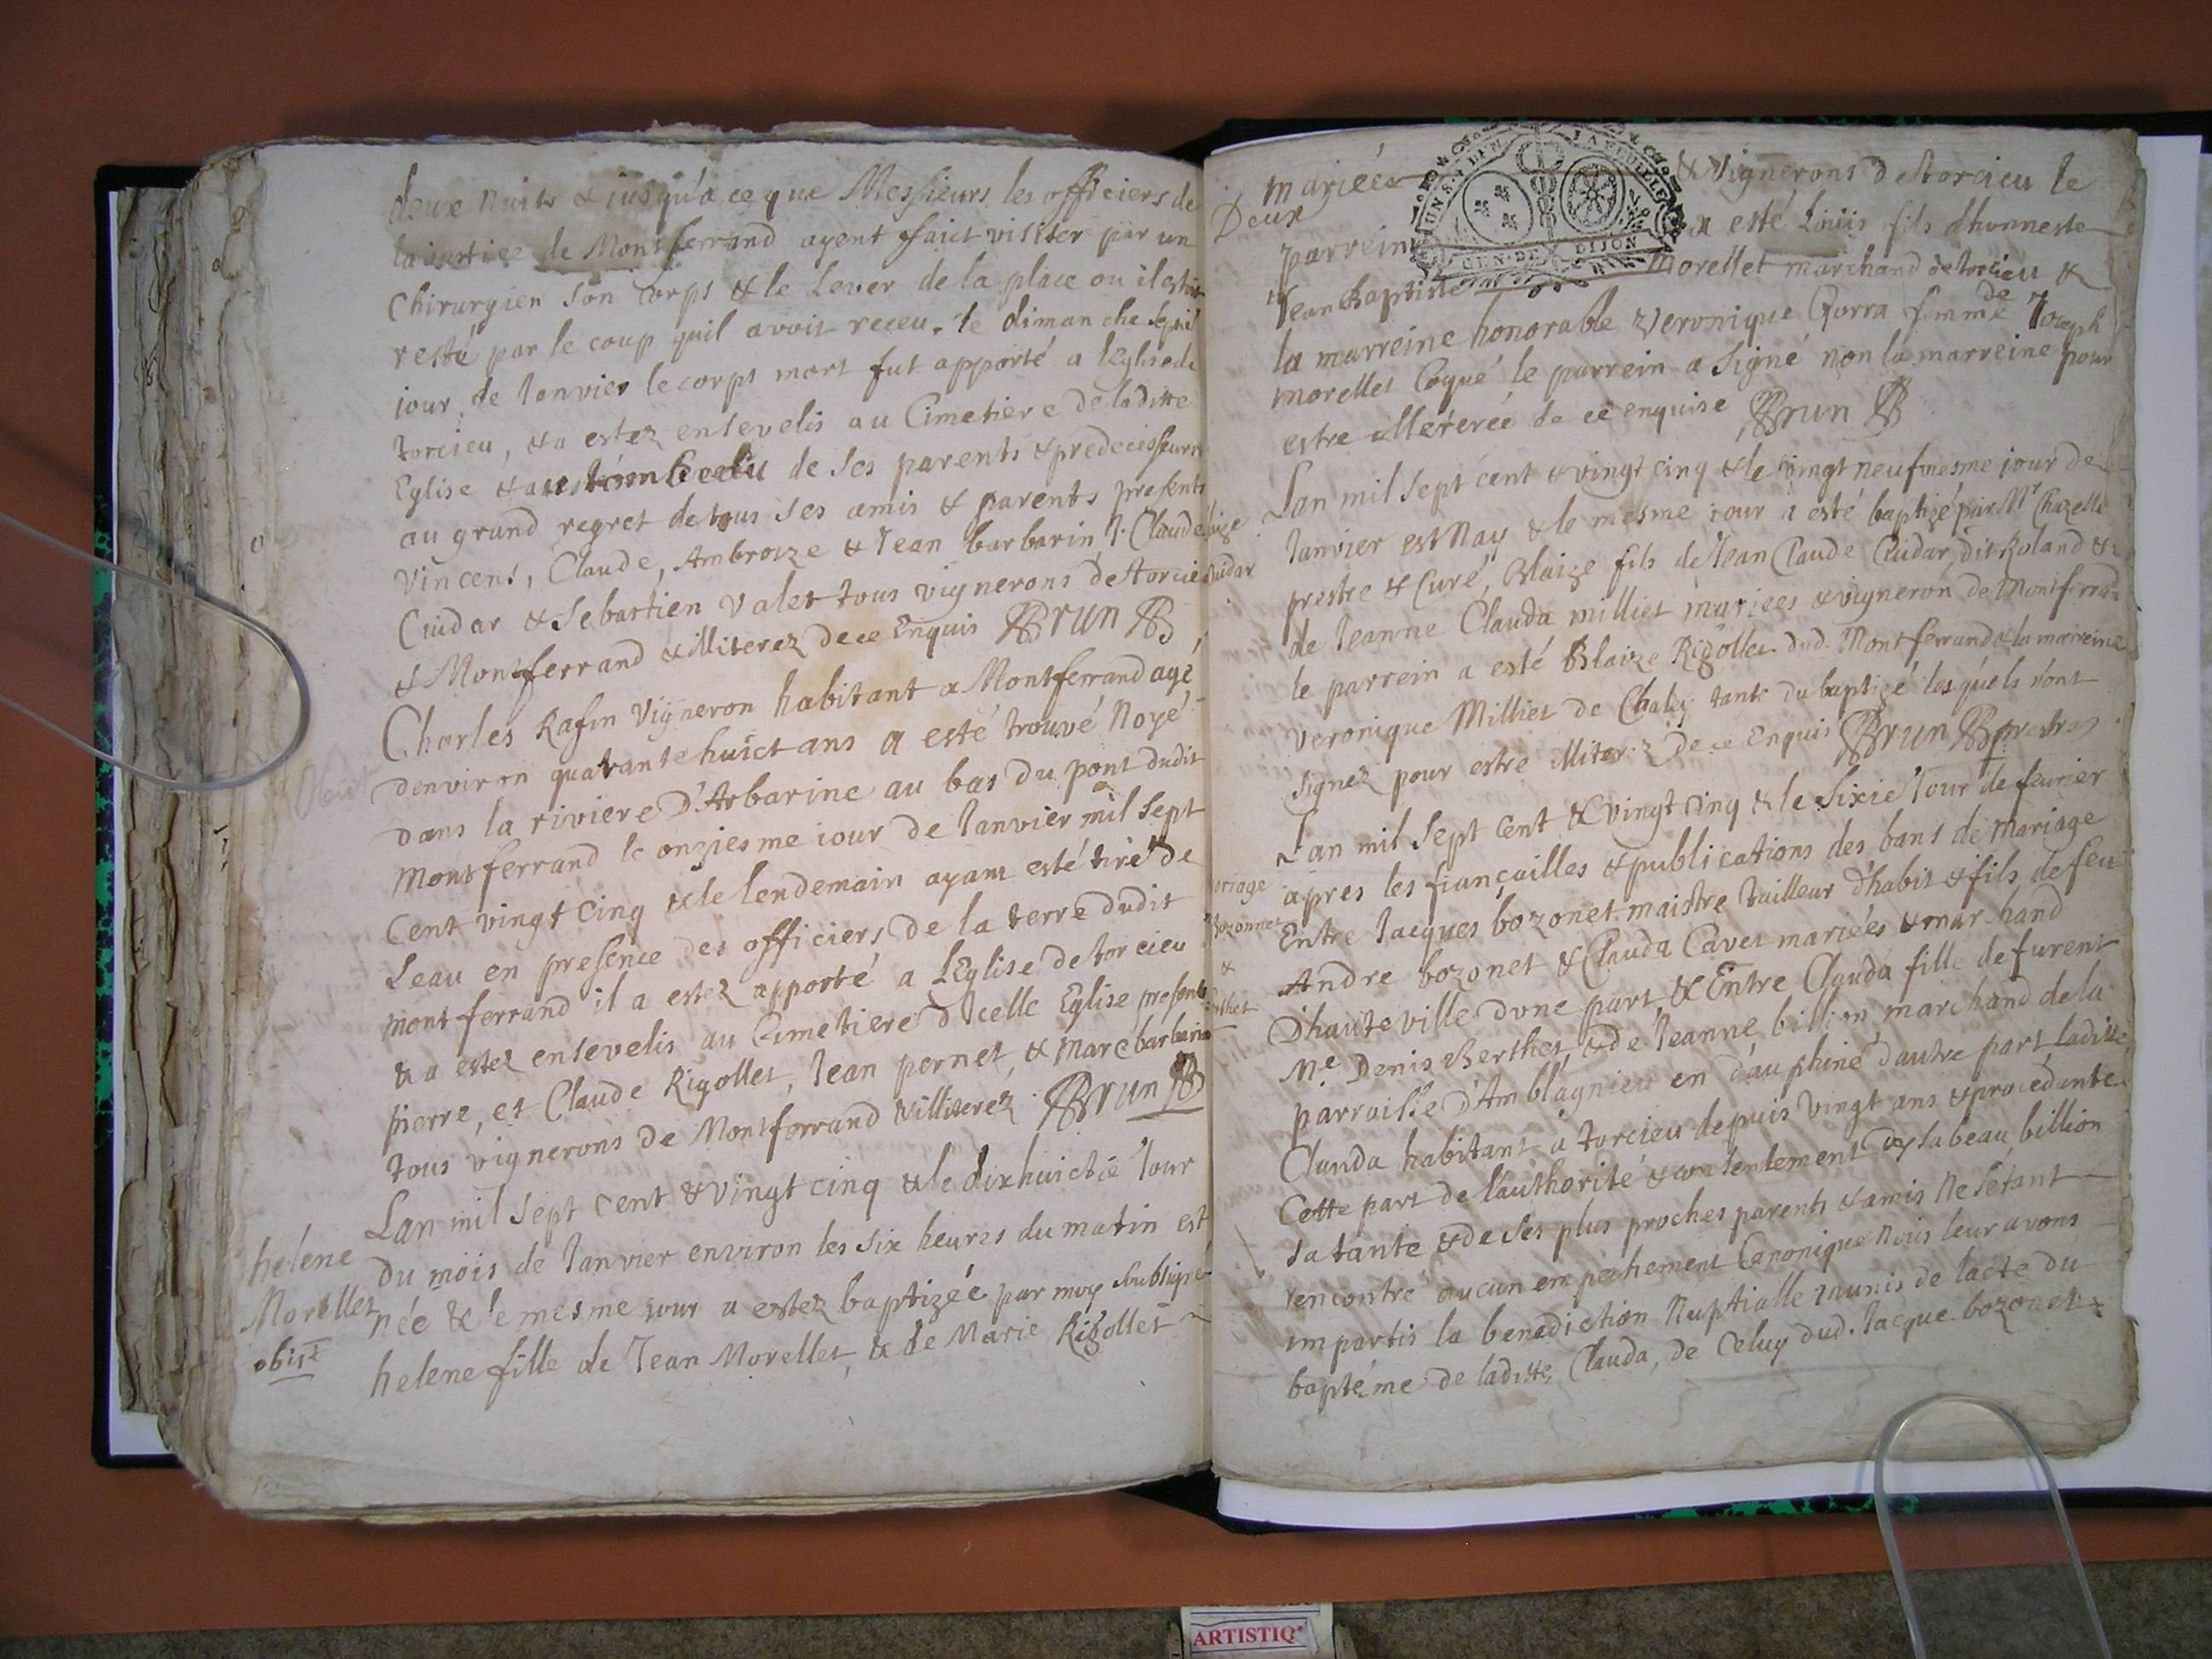 deux nuits & jusqu'a ce que Messieurs les officiers de
la justice de Montferrand ayent faict visiter par un
chirurgien son corps & le Lever de la place ou il estoit
resté par le coup quil avoit receu. le dimanche
jour de Janvier le corps mort fut apporté a lEglise de
torcieu, & a estez ensevelis au Cimetiere de laditte
Eglise & au tombeau de ses parents & predecesseurs
au grand regret de tous ses amis & parents presents
Vincent, Claude, Ambroize & Jean barbarin J. Claude
Cuidar & Sebastien Valet tous vignerons de torcieu
& Montferrand & illiterez de ce Enquis Brun
Charles Rafin Vigneron habitant a Montferrand agé
denviron quarante huict ans a esté trouvé Noyé
dans la riviere D'Arbarine au bas du pont dudit
Montferrand le onziesme iour de Janvier mil sept
Cent vingt cinq & le lendemain ayant esté tiré de
Leau en presence des officiers de la terre dudit
montferrand il a estez apporté a LEglise de torcieu
& a estez ensevelis au Cimetiere dIcelle Eglise presents
pierre, et Claude Rigollet, Jean pernet, & Marc barbarin
tous vignerons de Montferrand & illiterez Brun
Lan mil sept cent & vingt cinq & le dixhuictie Jour
helene
Morellet
obiit
du mois de Janvier environ les six heures du matin est
née & le mesme jour a estez baptizée par moy soubsigné
helene fille de Jean Morellet, & de Marie Rigollet
mariées & Vignerons de torcieu le
Deux
parrein a esté Louis fils dhonneste
Jean Baptiste Morellet marchand de torcieu &
la marreine honorable Veronique Corra femme de Joseph
morellet Coqué le parrein a signé non la marreine pour
estre illeterée de ce enquise Brun
Lan mil sept cent & vingt cinq & le vingt neufviesme jour de
Janvier est Nay & le mesme jour a esté baptizé par Mr Chazelle
prestre & Curé, Blaize fils de Jean Claude Cuidar, dit Roland &
de Jeanne Clauda milliet mariees & vigneron de Montferrand
le parrein a esté Blaize Rigollet dud. Montferrand & la marreine
Veronique Milliet de Chaley tante du baptizé lesquels n'ont
signez pour estre illiterez de ce Enquis Brun prestre
Lan mil sept cent & vingt cinq & le sixie Jour de fevrier
apres les fiançailles & publications des bans de mariage
Entre Jacques bozonet maistre tailleur d'habit & fils de feu
Andre bozonet & Clauda Cavet mariées & marchand
Dhauteville dune part, & Entre Clauda fille de furent
Me Denis Berthet, & de Jeanne billion marchand de la
parroisse D'Amblagnieu en dauphiné dautre part laditte
Clauda habitant a torcieu depuis vingt ans & procedante
Cette part de l'authorité & consentement Isabeau billion
sa tante & de ses plus proches parents & amis Ne sétant
rencontré aucun empechement Canonique Nous leur avons
impartis la benediction Nuptialle munis de lacte du
baptéme de laditte Clauda, de Celuy dud. Jacque bozonet
ARTISTIQ